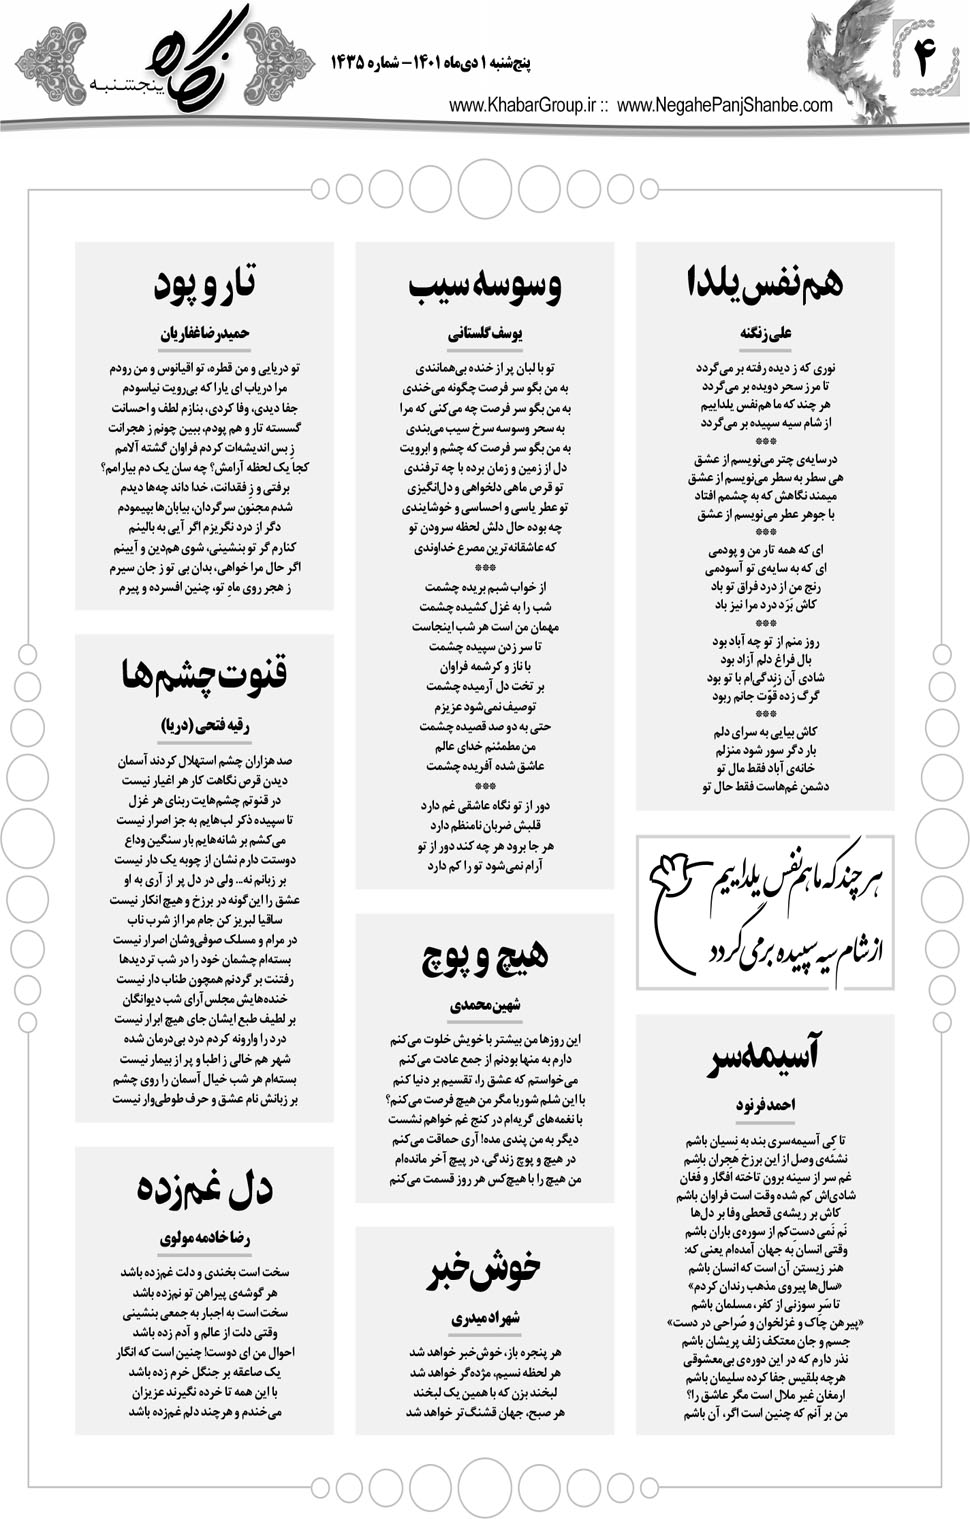 ۴
پنج‌شنبه ۱ دی‌ماه ۱۴۰۱- شماره ۱۴۳۵
www.KhabarGroup.ir :: www.NegahePanjShanbe.com
نگاه
پنجشنبه
هم‌نفس یلدا
علی زنگنه
نوری که ز دیده رفته بر می‌گردد
تا مرز سحر دویده بر می‌گردد
هر چند که ما هم‌نفس یلداییم
از شام سیه سپیده بر می‌گردد
***
درسایه‌ی چتر می‌نویسم از عشق
هی سطر به سطر می‌نویسم از عشق
میمند نگاهش که به چشمم افتاد
با جوهر عطر می‌نویسم از عشق
***
ای که همه تار من و پودمی
ای که به سایه‌ی تو آسودمی
رنج من از درد فراق تو باد
کاش بَرَد درد مرا نیز باد
***
روز منم از تو چه آباد بود
بال فراغ دلم آزاد بود
شادی آن زندگی‌ام با تو بود
گرگ زده قوّت جانم ربود
***
کاش بیایی به سرای دلم
بار دگر سور شود منزلم
خانه‌ی آباد فقط مال تو
دشمن غم‌هاست فقط حال تو
هر چند که ما هم‌نفس یلداییم
از شام سیه سپیده بر می‌گردد
آسیمه‌سر
احمد فرنود
تا کِی آسیمه‌سری بند به نِسیان باشم
نشئه‌ی وصل از این برزخ هجران باشم
غم سر از سینه برون تاخته افگار و فغان
شادی‌اش کم شده وقت است فراوان باشم
کاش بر ریشه‌ی قحطی وفا بر دل‌ها
نَم نَمی دستِ‌کم از سوره‌ی باران باشم
وقتی انسان به جهان آمده‌ام یعنی که:
هنر زیستن آن است که انسان باشم
«سال‌ها پیروی مذهب رندان کردم»
تا سَرِ سوزنی از کفر، مسلمان باشم
«پیرهن چاک و غزلخوان و صُراحی در دست»
جسم و جان معتکف زلف پریشان باشم
نذر دارم که در این دوره‌ی بی‌معشوقی
هرچه بلقیس جفا کرده سلیمان باشم
ارمغان غیر ملال است مگر عاشق را؟
من بر آنم که چنین است اگر، آن باشم
وسوسه سیب
یوسف گلستانی
تو با لبان پر از خنده بی‌همانندی
به من بگو سر فرصت چگونه می‌خندی
به من بگو سر فرصت چه می‌کنی که مرا
به سحر وسوسه سرخ سیب می‌بندی
به من بگو سر فرصت که چشم و ابرویت
دل از زمین و زمان برده با چه ترفندی
تو قرص ماهی دلخواهی و دل‌انگیزی
تو عطر یاسی و احساسی و خوشایندی
چه بوده حال دلش لحظه سرودن تو
که عاشقانه‌ترین مصرع خداوندی
***
از خواب شبم بریده چشمت
شب را به غزل کشیده چشمت
مهمان من است هر شب اینجاست
تا سر زدن سپیده چشمت
با ناز و کرشمه فراوان
بر تخت دل آرمیده چشمت
توصیف نمی‌شود عزیزم
حتی به دو صد قصیده چشمت
من مطمئنم خدای عالم
عاشق شده آفریده چشمت
***
دور از تو نگاه عاشقی غم دارد
قلبش ضربان نامنظم دارد
هر جا برود هر چه کند دور از تو
آرام نمی‌شود تو را کم دارد
هیچ و پوچ
شهین محمدی
این روزها من بیشتر با خویش خلوت می‌کنم
دارم به منها بودنم از جمع عادت می‌کنم
می‌خواستم که عشق را، تقسیم بر دنیا کنم
با این شلم شوربا مگر من هیچ فرصت می‌کنم؟
با نغمه‌های گریه‌ام در کنج غم خواهم نشست
دیگر به من پندی مده! آری حماقت می‌کنم
در هیچ و پوچ زندگی، در پیچ آخر مانده‌ام
من هیچ را با هیچ‌کس هر روز قسمت می‌کنم
خوش‌خبر
شهراد میدری
هر پنجره باز، خوش‌خبر خواهد شد
هر لحظه نسیم، مژده‌گر خواهد شد
لبخند بزن که با همین یک لبخند
هر صبح، جهان قشنگ‌تر خواهد شد
تار و پود
حمیدرضا غفاریان
تو دریایی و من قطره، تو اقیانوس و من رودم
مرا دریاب ای یارا که بی‌رویت نیاسودم
جفا دیدی، وفا کردی، بنازم لطف و احسانت
گسسته تار و هم پودم، ببین چونم ز هجرانت
ز بس اندیشه‌ات کردم فراوان گشته آلامم
کجا یک لحظه آرامش؟ چه سان یک دم بیارامم؟
برفتی و ز فقدانت، خدا داند چه‌ها دیدم
شدم مجنون سرگردان، بیابان‌ها بپیمودم
دگر از درد نگریزم اگر آیی به بالینم
کنارم گر تو بنشینی، شوی هم‌دین و آیینم
اگر حال مرا خواهی، بدان بی تو ز جان سیرم
ز هجر روی ماهِ تو، چنین افسرده و پیرم
قنوت چشم‌ها
رقیه فتحی (دریا)
صد هزاران چشم استهلال کردند آسمان
دیدن قرص نگاهت کار هر اغیار نیست
در قنوتم چشم‌هایت ربنای هر غزل
تا سپیده ذکر لب‌هایم به جز اصرار نیست
می‌کشم بر شانه‌هایم بار سنگین وداع
دوستت دارم نشان از چوبه یک دار نیست
بر زبانم نه... ولی در دل پر از آری به او
عشق را این‌گونه در برزخ و هیچ انکار نیست
ساقیا لبریز کن جام مرا از شرب ناب
در مرام و مسلک صوفی‌وشان اصرار نیست
بسته‌ام چشمان خود را در شب تردیدها
رفتنت بر گردنم همچون طناب دار نیست
خنده‌هایش مجلس آرای شب دیوانگان
بر لطیف طبع ایشان جای هیچ ابرار نیست
درد را وارونه کردم درد بی‌درمان شده
شهر هم خالی ز اطبا و پر از بیمار نیست
بسته‌ام هر شب خیال آسمان را روی چشم
بر زبانش نام عشق و حرف طوطی‌وار نیست
دل غم‌زده
رضا خادمه مولوی
سخت است بخندی و دلت غم‌زده باشد
هر گوشه‌ی پیراهن تو نم‌زده باشد
سخت است به اجبار به جمعی بنشینی
وقتی دلت از عالم و آدم زده باشد
احوال من ای دوست! چنین است که انگار
یک صاعقه بر جنگل خرم زده باشد
با این همه تا خرده نگیرند عزیزان
می‌خندم و هرچند دلم غم‌زده باشد